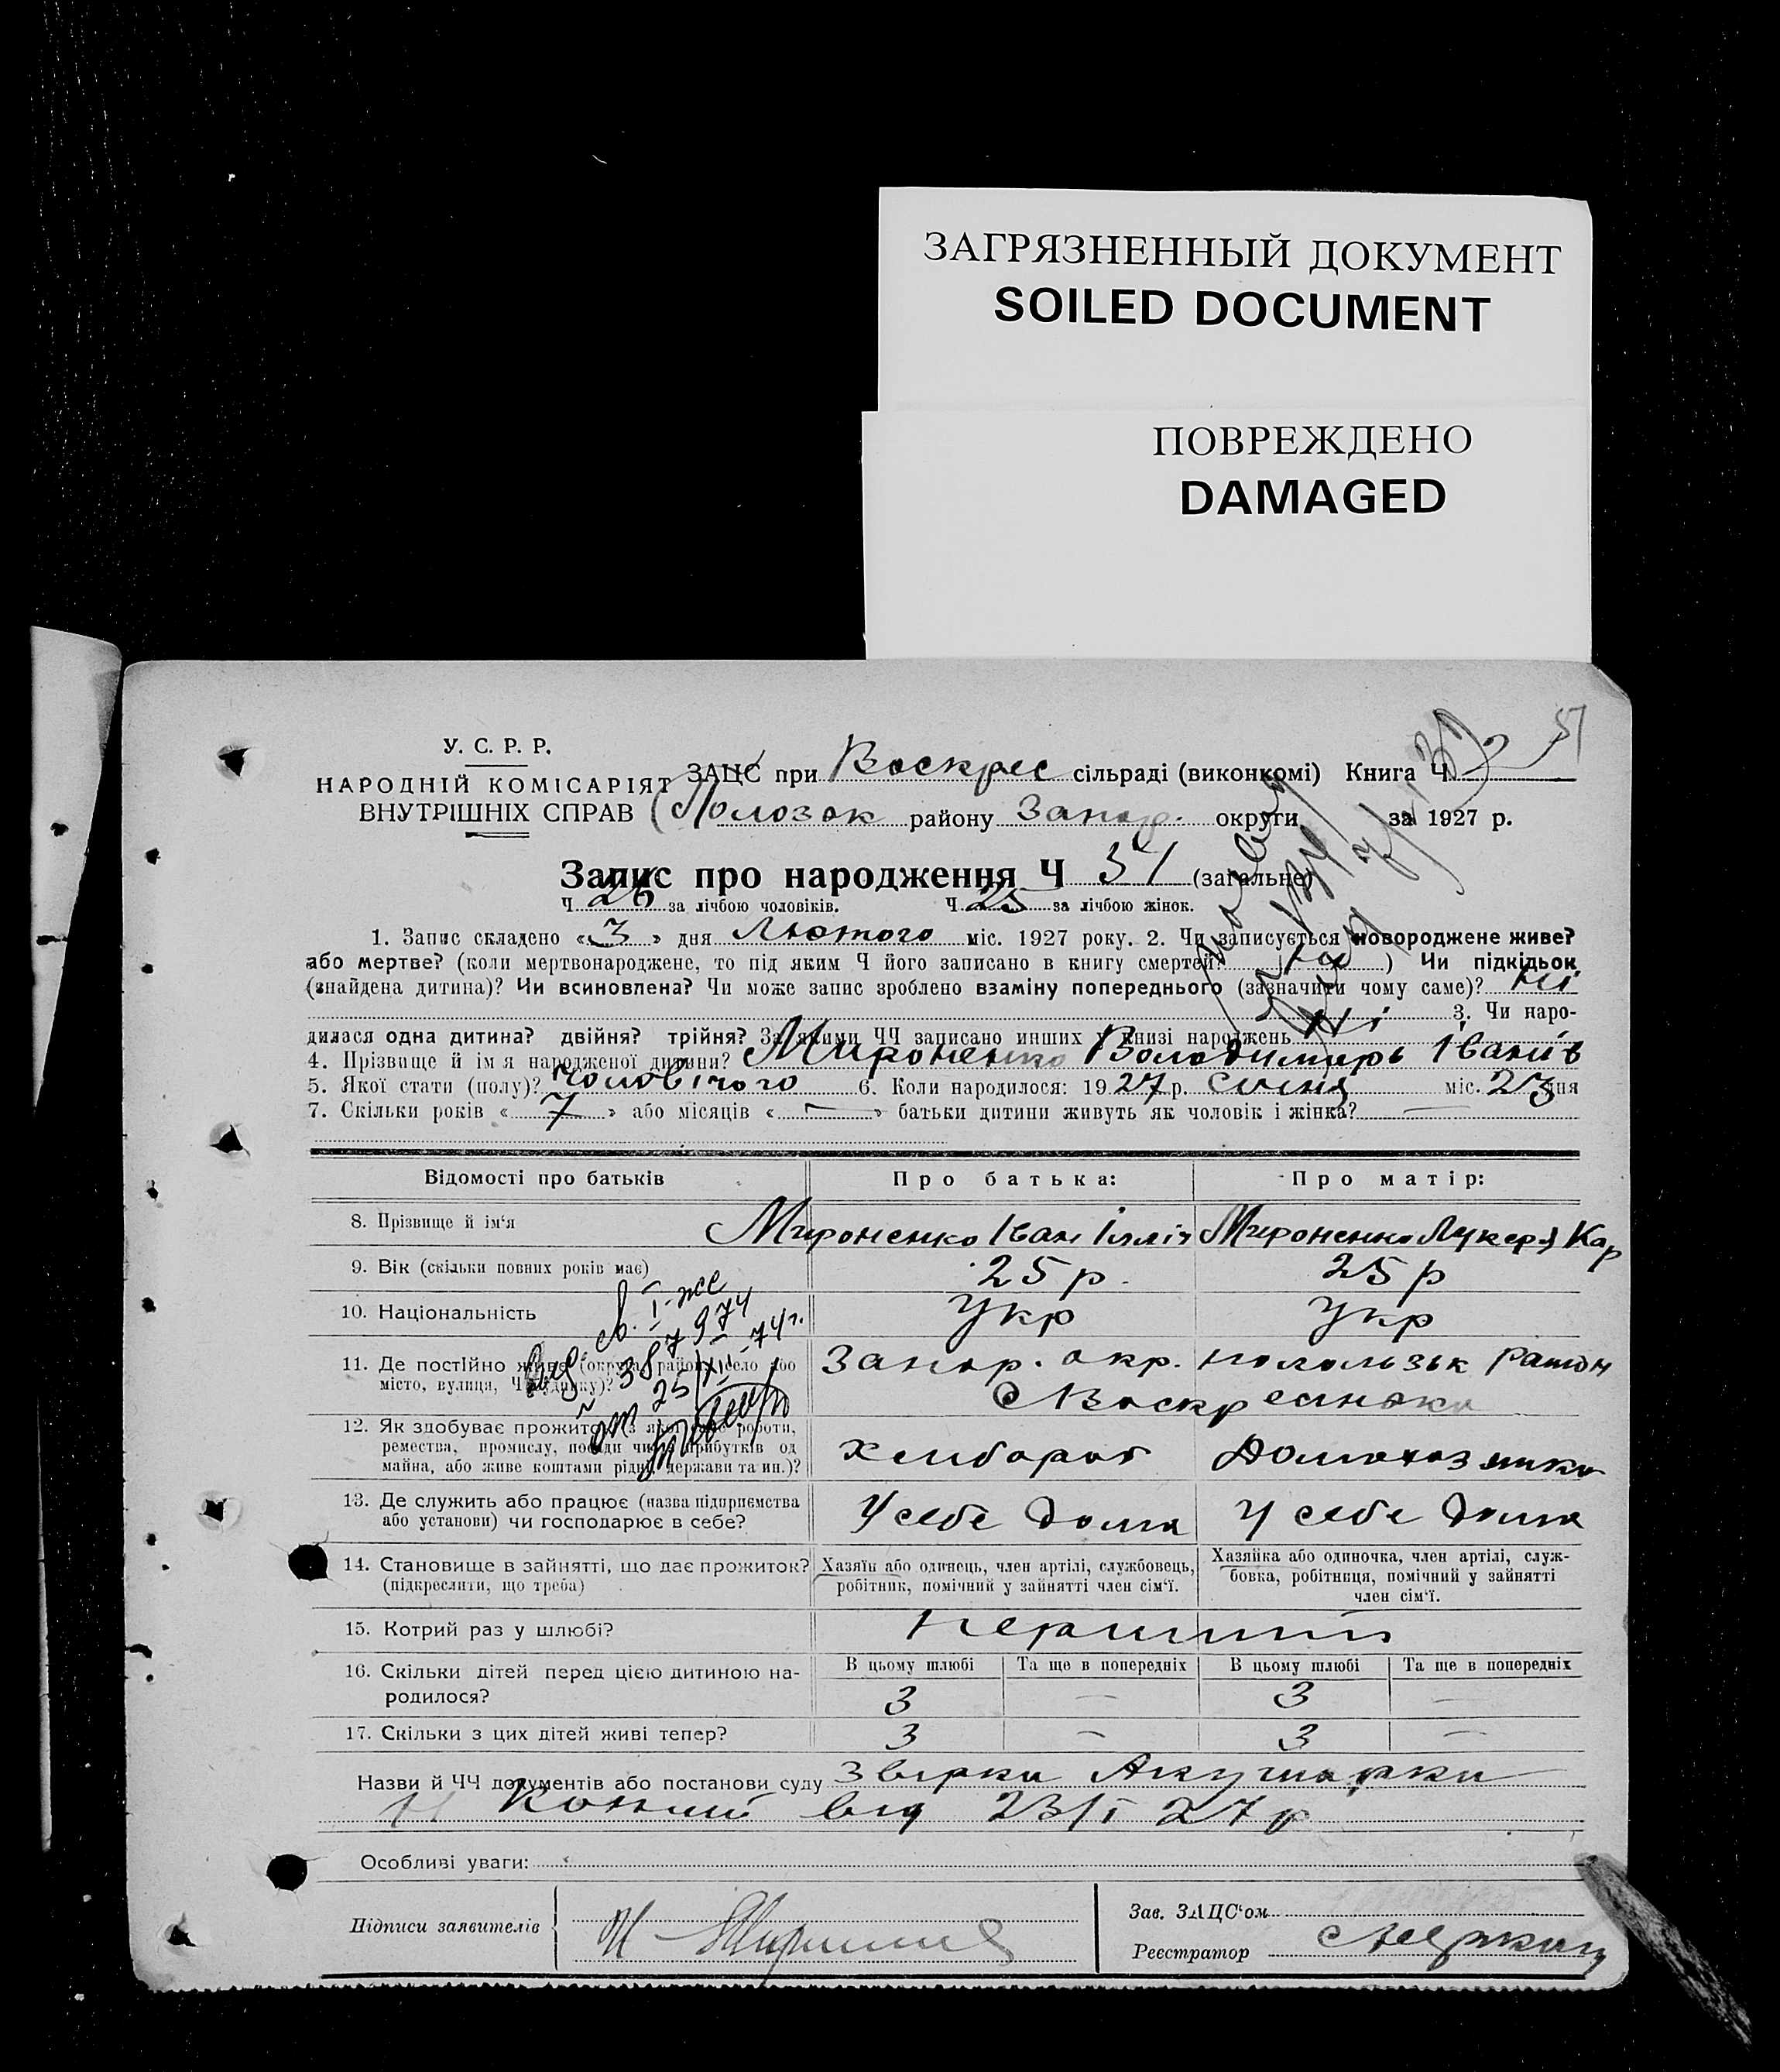 ЗАГРЯЗНЕННЫЙ ДОКУМЕНТ
SOILED DOCUMENT
ПОВРЕЖДЕНО
DAMAGED
51
У. С. Р. Р.
НАРОДНІЙ КОМІСАРІЯТ
ВНУТРІШНІХ СПРАВ
ЗАЦС при Воскрес сільраді (виконкомі) Книга Ч
району Запор. округи за 1927 р.
Запис про народження Ч 51 (загальне)
Ч 26 за лічбою чоловіків. Ч 25 за лічбою жінок.
1. Запис складено «3» дня Лютого міс. 1927 року. 2. Чи записується новороджене живе?
або мертве? (коли мертвонароджене, то під яким Ч його записано в книгу смертей? ) Чи підкідьок
(знайдена дитина)? Чи всиновлена? Чи може запис зроблено взаміну попереднього (зазначити чому саме)? ні
3. Чи наро-
дилася одна дитина? двійня? трійня? За якими ЧЧ записано инших у книзі народжень Ні
4. Прізвище й ім я народженої дитини? Мироненко Володимирь Іванів
5. Якої стати (полу)? чоловічого 6. Коли народилося: 1927 р. січня міс. 23 дня
7. Скільки років «7» або місяців «—» батьки дитини живуть як чоловік і жінка? —
Відомості про батьків
Про батька:
Про матір:
8. Прізвище й ім'я
Мироненко Іван Ілліч
Мироненко Лукеря Кар
9. Вік (скільки повних років має)
25 р.
25 р
10. Національність
Укр
Укр
11. Де постійно живе (округа, район, село або
місто, вулиця, Ч будинку)?
Запор. окр.
Воскресенка
12. Як здобуває прожиток (з якої саме роботи,
ремества, промислу, посади чи прибутків од
майна, або живе коштами рідні, держави та ин.)?
Хлібороб
Домохозяйка
13. Де служить або працює (назва підприємства
або установи) чи господарює в себе?
У себе дома
У себе дома
14. Становище в зайнятті, що дає прожиток?
(підкреслити, що треба)
Хазяїн або одинець, член артілі, службовець,
робітник, помічний у зайнятті член сім'ї.
Хазяйка або одиночка, член артілі, служ-
бовка, робітниця, помічний у зайнятті
член сім'ї.
15. Котрий раз у шлюбі?
Перший
16. Скільки дітей перед цією дитиною на-
родилося?
В цьому шлюбі
Та ще в попередніх
В цьому шлюбі
Та ще в попередніх
3 — 3 —
17. Скільки з цих дітей живі тепер?
3 — 3 —
Назви й ЧЧ документів або постанови суду Акушерки
від 23/I 27 р
Особливі уваги:
Підписи заявителів
Зав. ЗАЦС'ом
Реєстратор